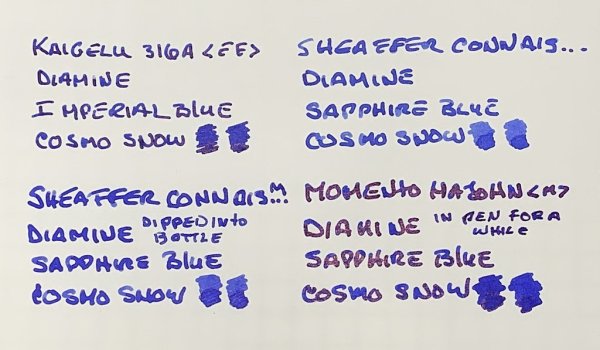 KAIGELU 316A <EF>
DIAMINE
IMPERIAL BLUE
COSMO SNOW
SHEAFFER CONNAIS...
DIAMINE
SAPPHIRE BLUE
COSMO SNOW
SHEAFFER CONNAIS... M
DIAMINE DIPPED INTO BOTTLE
SAPPHIRE BLUE
COSMO SNOW
MOMENTO <M>
DIAMINE IN PEN FOR A WHILE
SAPPHIRE BLUE
COSMO SNOW